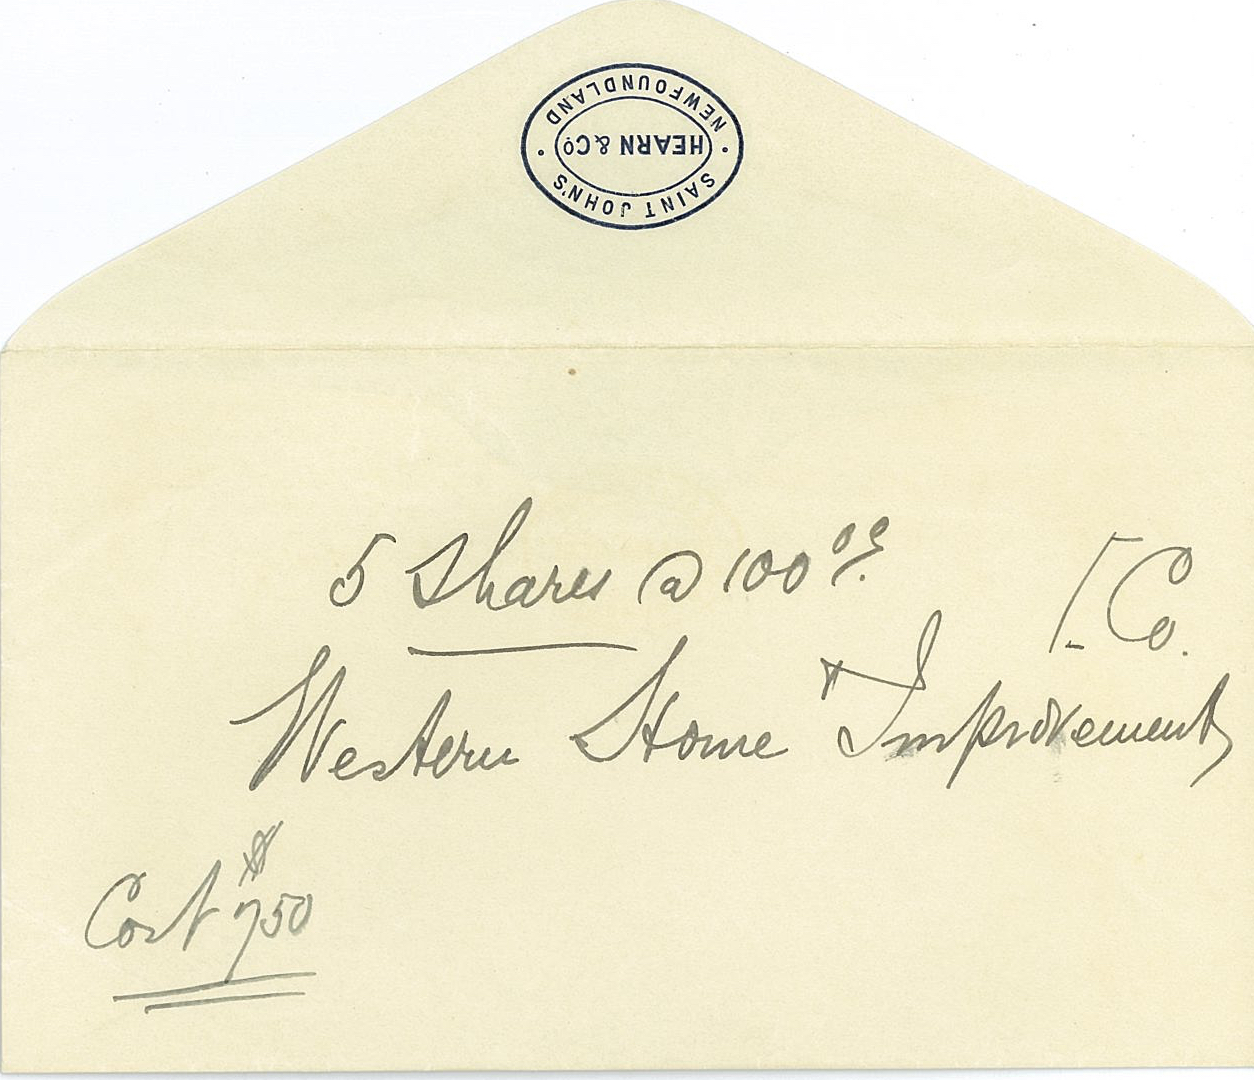 NEWFOUNDLAND
HEARN & Co
SAINT JOHN'S
5 Shares @ 100 00
[Co.
Western Home Improvement
Cost $750